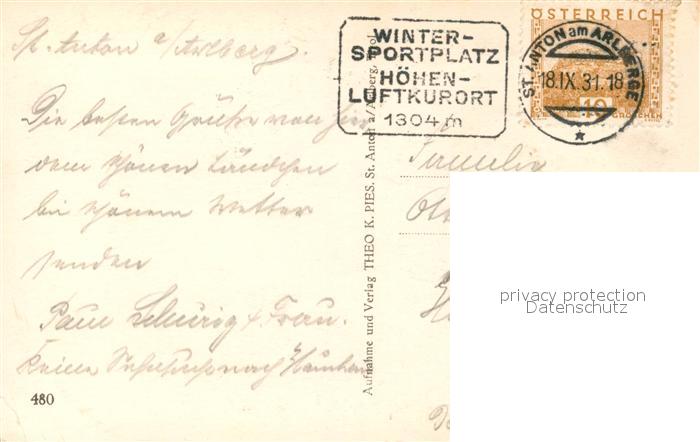 St. Anton a/Arlberg.
Die besten Grüße von hier
dem schönen Ländchen
bei schönem Wetter
senden
Paul & Frau.
Keine Sehnsucht nach
480
Aufnahme und Verlag THEO K. PIES, St. Anton a/Arlberg,
WINTER-
SPORTPLATZ
HÖHEN-
LUFTKURORT
1304 m
ÖSTERREICH
ST. ANTON am ARLBERGE
18.IX.31.18
10
GROSCHEN
Familie
privacy protection
Datenschutz